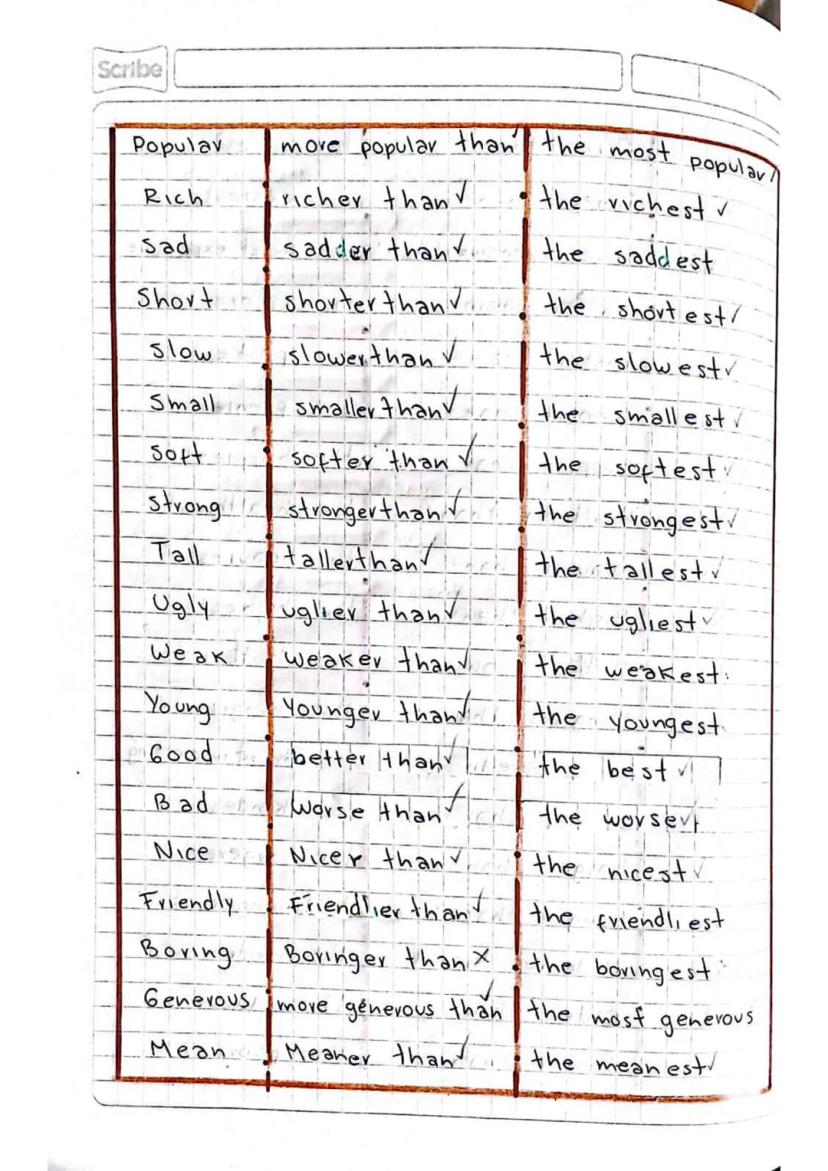 Scribe
Popular more popular than the most popular
Rich richer than the richest
Sad sadder than the saddest
Short shorter than the shortest
Slow slower than the slowest
Small smaller than the smallest
Soft softer than the softest
Strong stronger than the strongest
Tall taller than the tallest
Ugly uglier than the ugliest
Weak weaker than the weakest
Young Younger than the youngest
Good better than the best
Bad worse than the worse
Nice Nicer than the nicest
Friendly Friendlier than the friendliest
Boring Boringer than the boringest
Generous more generous than the most generous
Mean Meaner than the meanest